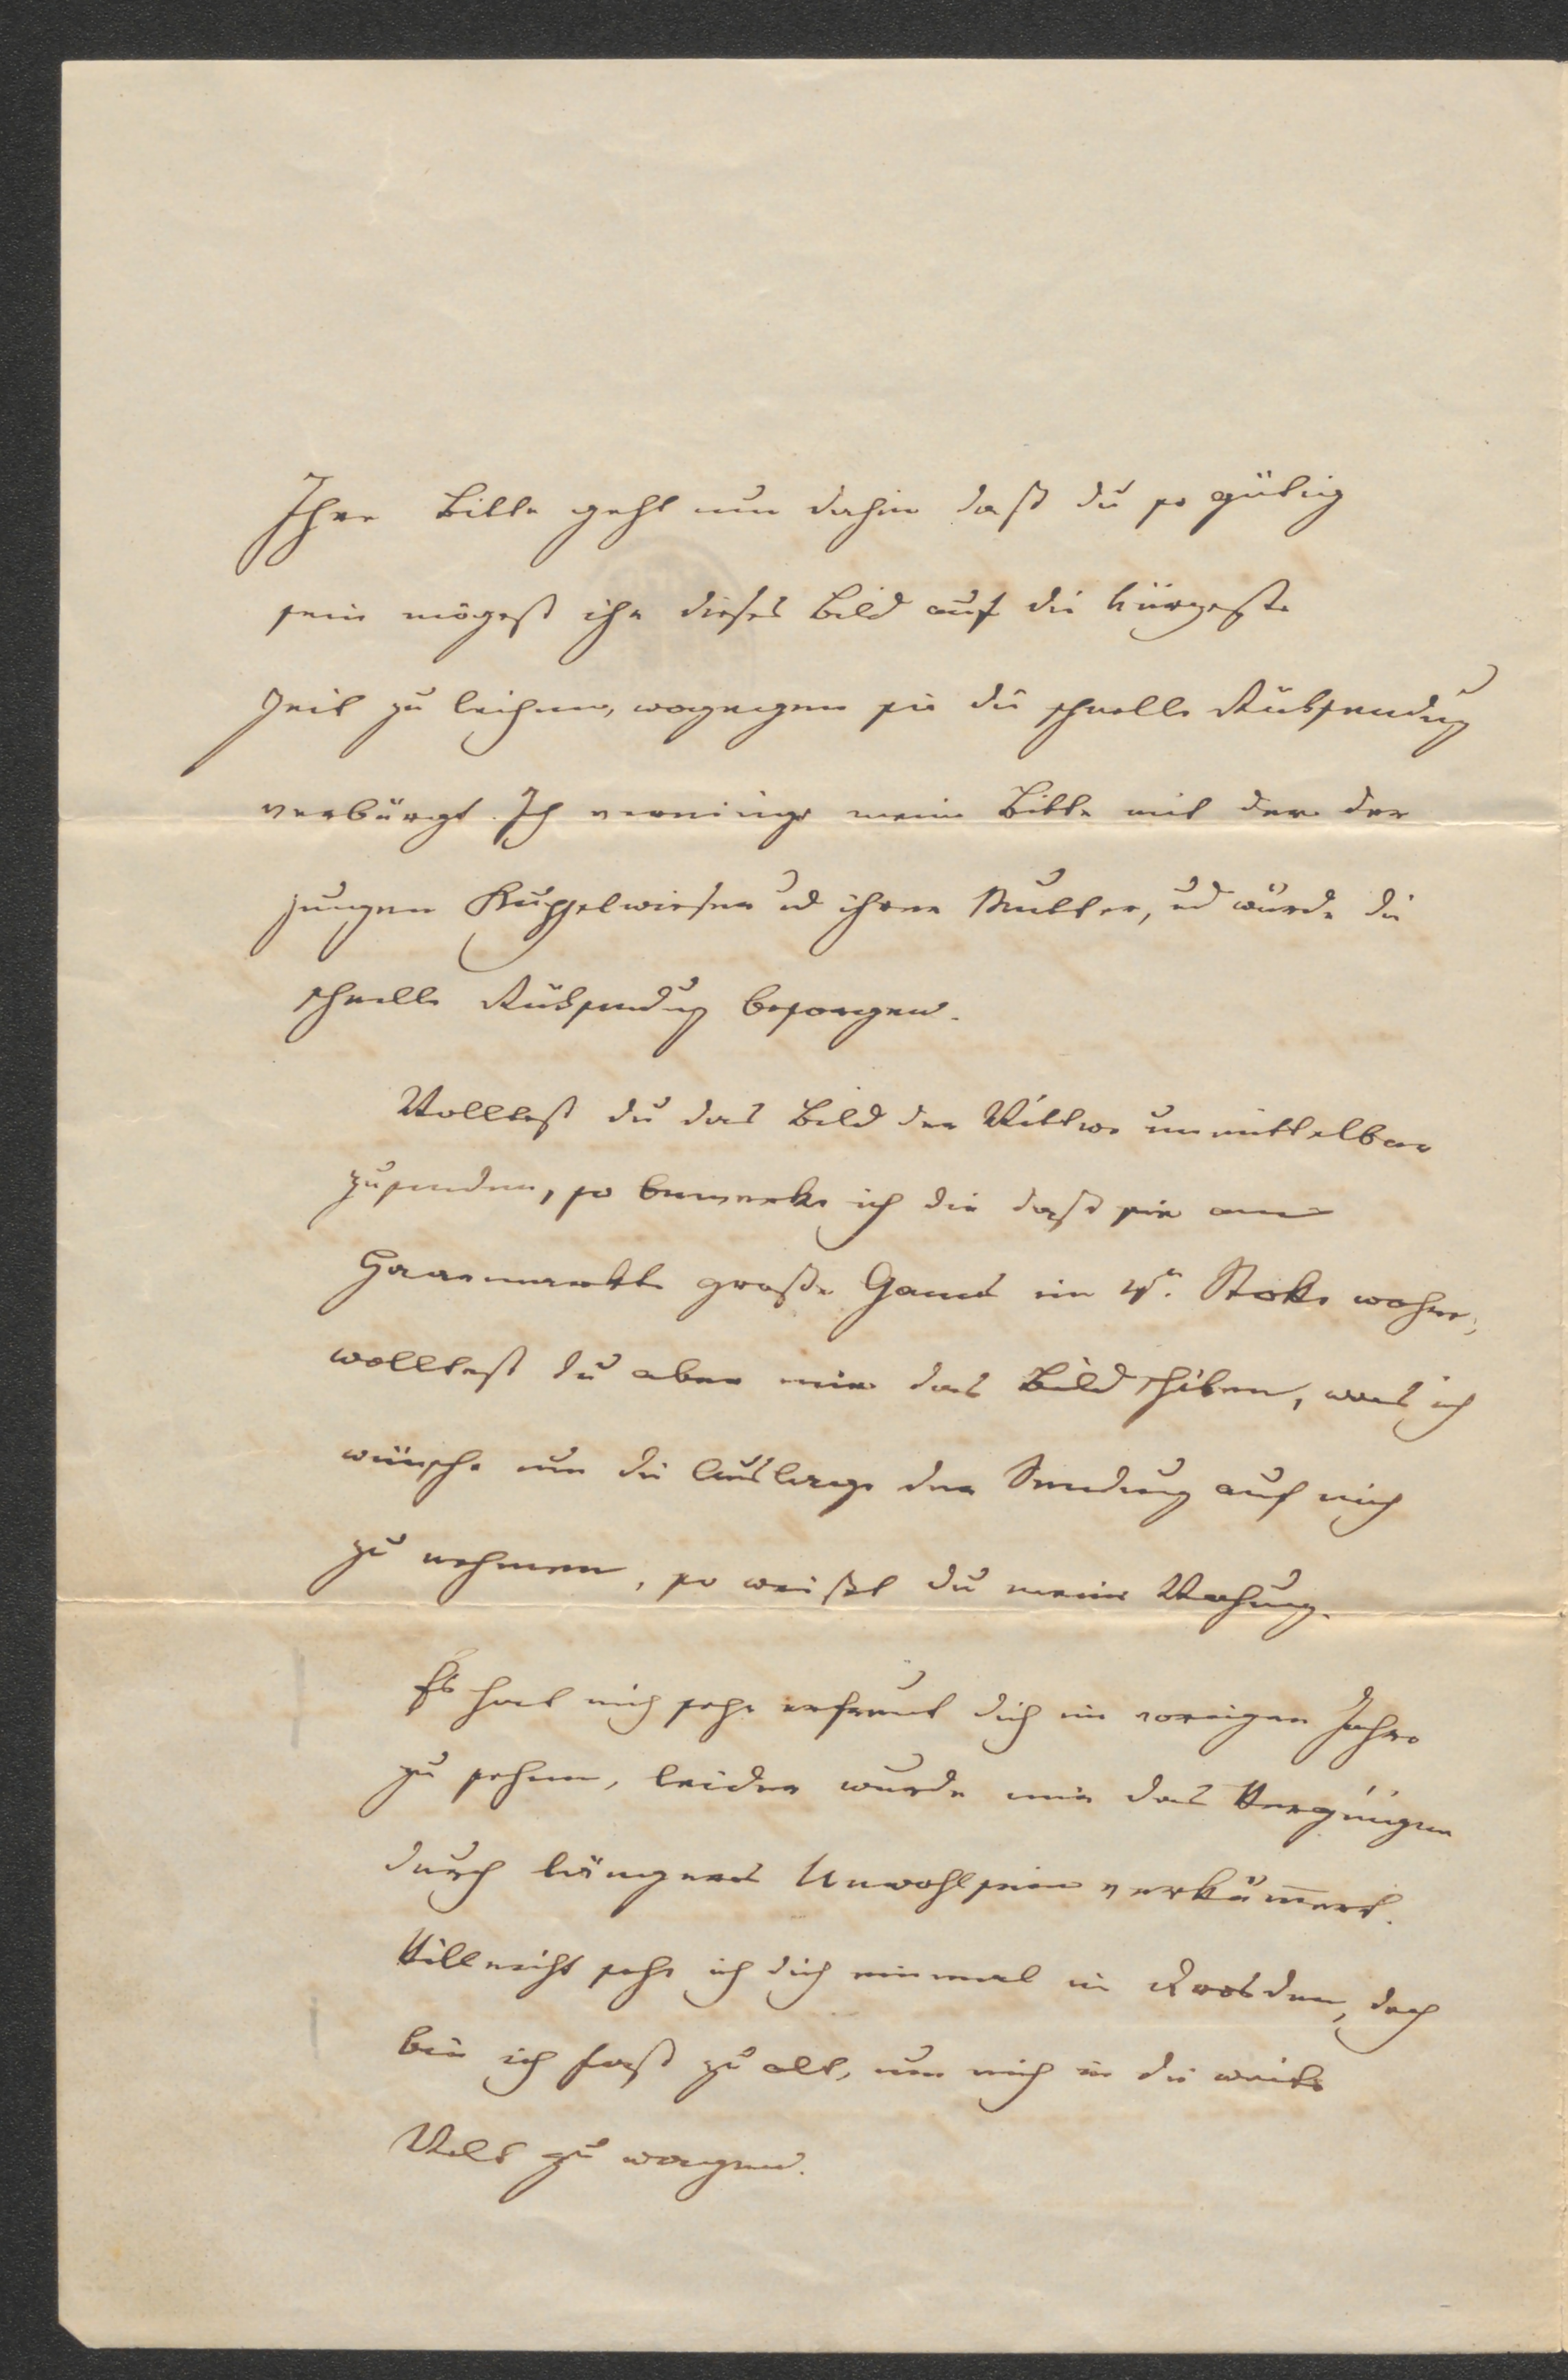 Ihre Bitte geht nun dahin daß du so gütig
sein mögest ihr dieses Bild auf die kürzeste
Zeit zu leihen, wogegen sie die schnelle Rüksendug
verbürgt. Ich vereinige meine Bitte mit der der
jungen Kuppelwieser ud ihrer Mutter, ud würde die
schnelle Rüksendug besorgen.
Wolltest du das Bild der Wittwe unmittelbar
zusenden, so bemerke ich dir daß sie am
Haarmarkte große Hause im 4n. Stoke wohne,
wolltest du aber mir das Bild schiken, was ich
wünsche um die Auslage der Sendung auf mich
zu nehmen, so weißt du meine Wohung.
Es hat mich sehr erfreut dich im vorigen Jahre
zu sehen, leider wurde mir das Vergnügen
durch längeres Unwohlsein verküm̅ert.
Villeicht sehe ich dich einmal in Dresden, doch
bin ich fast zu alt, um mich in die weite
Welt zu wagen.